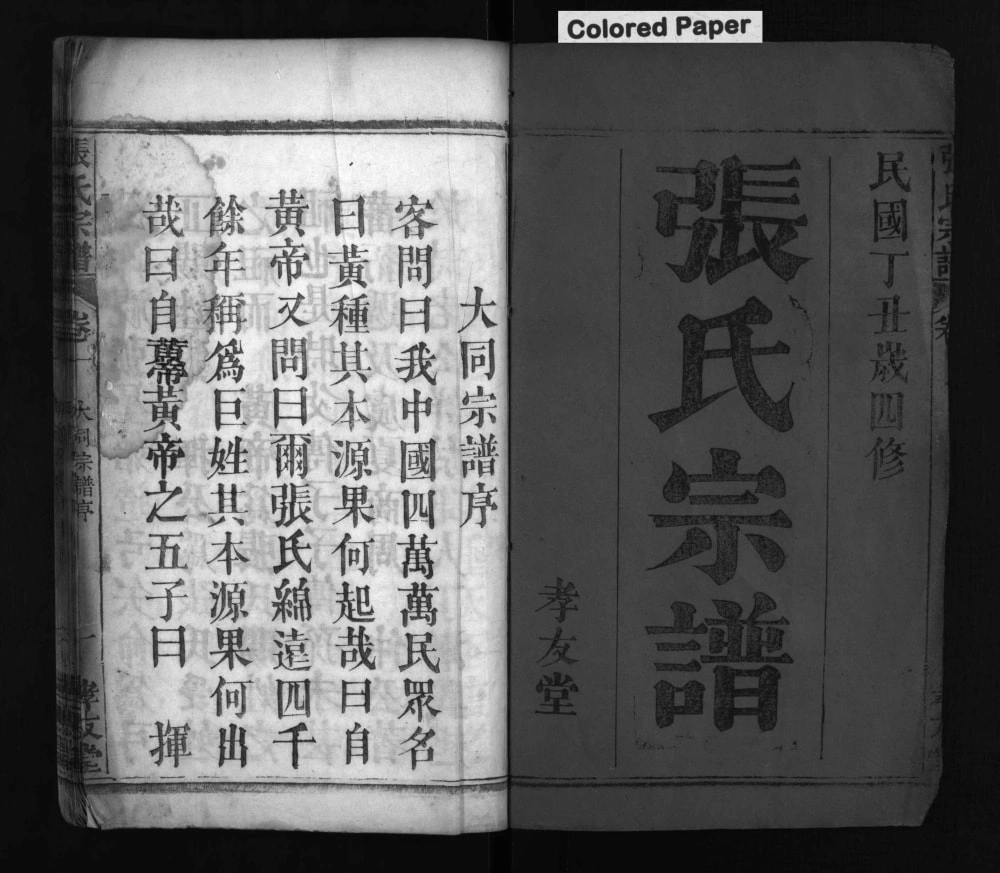 Colored Paper
民國丁丑歲四修
張氏宗譜
孝友堂
大同宗譜序
客問曰我中國四萬萬民眾名
曰黃種其本源果何起哉曰自
黃帝又問曰爾張氏綿遠四千
餘年稱爲巨姓其本源果何出
哉曰自黃帝之五子曰 揮
張氏宗譜 卷一 大同宗譜序 一 孝友堂